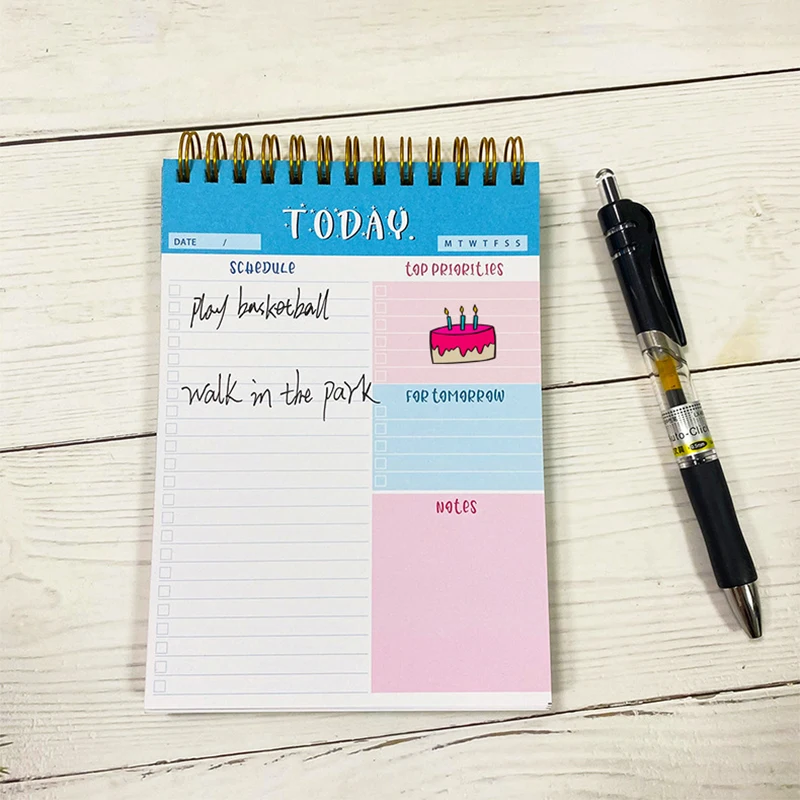 TODAY
DATE /
M T W T F S S
SCHEDULE
TOP PRIORITIES
play basketball
walk in the park
FOR TOMORROW
NOTES
Auto-Clic
0.5mm